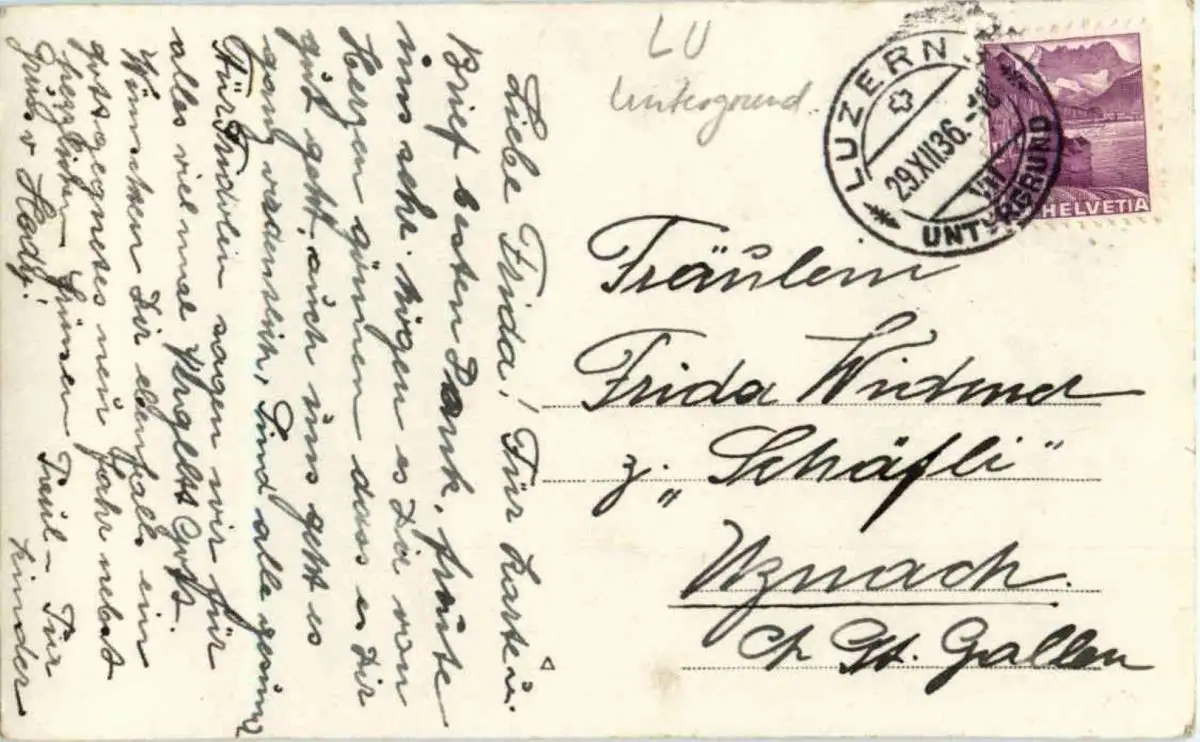 LU
Untergrund.
LUZERN
29.XII.36.-18
VII
UNTERGRUND
HELVETIA
Fräulein
Frida Widmer
z. „Schäfli"
Uznach.
Ct. St. Gallen
Liebe Frida! Für Karte u.
Brief besten Dank, freute
uns sehr. Mögen es Dir von
Herzen gönnen dass es Dir
gut geht, auch uns geht es
ganz ordentlich, sind alle gesund
Für Fridolin sagen wir für
alles viel mal Vergelts Gott.
Wünschen Dir ebenfalls ein
gottgesegnetes neues Jahr nebst
herzlichen Grüssen
Gruss v Hedy!
Kinder